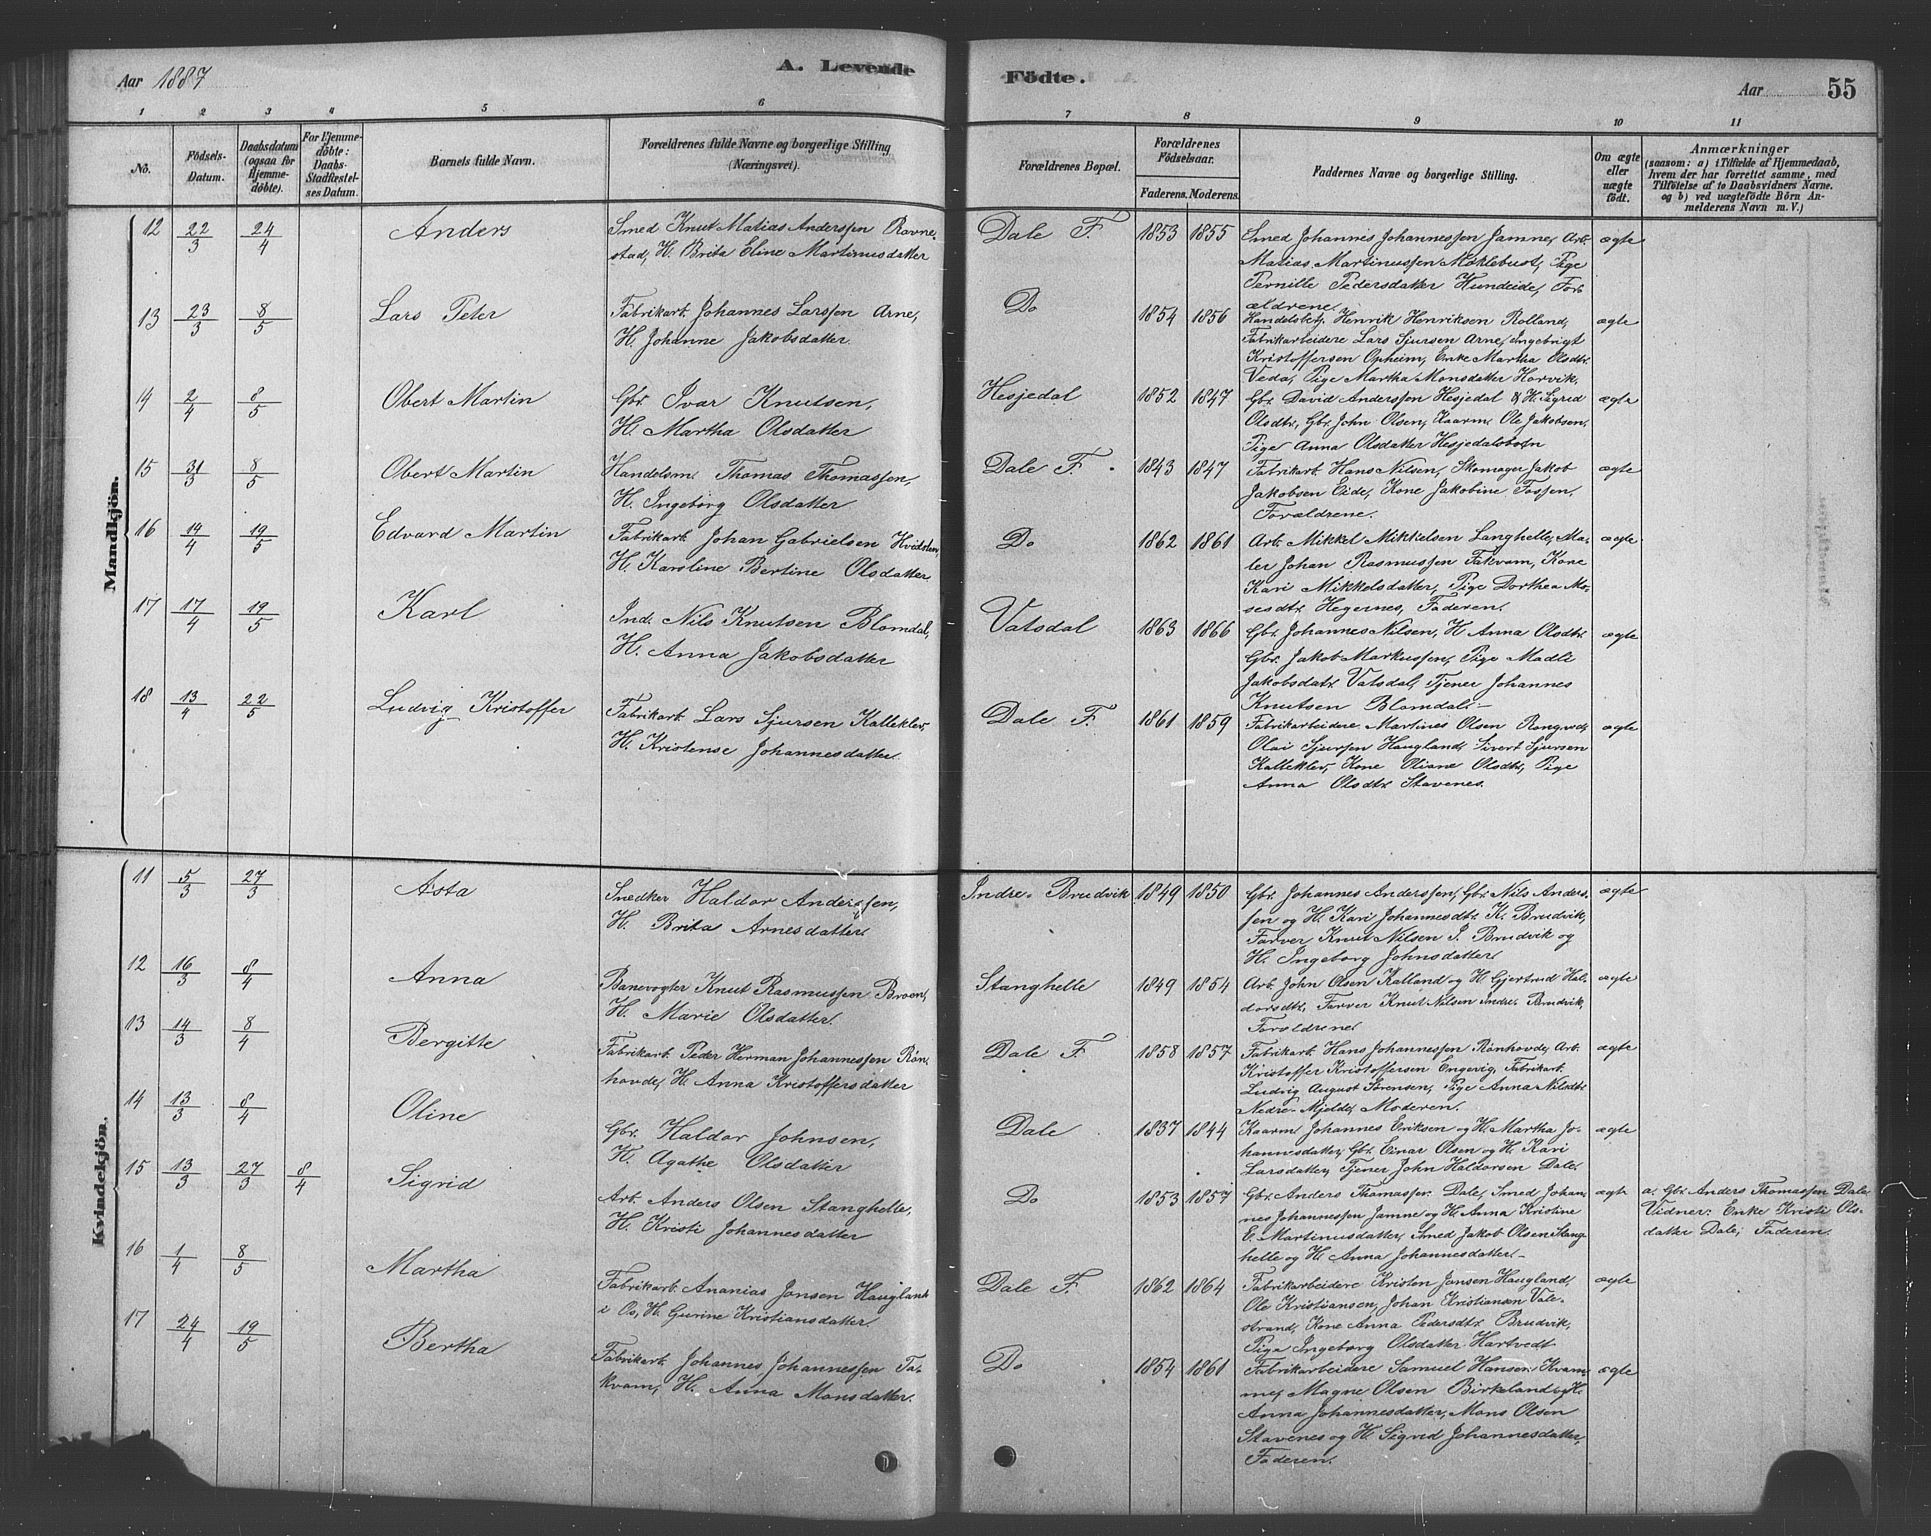 Aar 1887
A. Levende Födte.
Aar
55
1 2 3 4 5 6 7 8 9 10 11
No.
Födsels-
Datum.
Daabsdatum
(ogsaa for
Hjemme-
döbte).
For Hjemme-
döbte:
Daabs-
Stadfæstel-
ses Datum.
Barnets fulde Navn.
Forældrenes fulde Navne og borgerlige Stilling
(Næringsvei).
Forældrenes Bopæl.
Forældrenes
Födselsaar.
Faderens. Moderens.
Faddernes Navne og borgerlige Stilling.
Om ægte
eller
uægte
födt.
Anmærkninger
(saasom: a) i Tilfælde af Hjemmedaab,
hvem der har forrettet samme, med
Tilföielse af to Daabsvidners Navne.
og b) ved uægtefödte Börn An-
melderens Navn m. V.)
Mandkjön.
12 22/3 24/4 Anders
Smed Knut Matias Anderssen Ravne-
stad, H. Brita Eline Martinusdatter
Dale F. 1853 1855
Smed Johannes Johannessen Jamne, Arb.
Matias Martinussen Möklebust, Pige
Pernille Pedersdatter Hundeide, For-
ældrene.
ægte
13 23/3 8/5 Lars Peter
Fabrikarb. Johannes Larssen Arne,
H. Johanne Jakobsdatter.
Do 1854 1856
Handelsbetj. Henrik Henriksen Rolland,
Fabrikarbeidere Lars Sjursen Arne, Ingebrigt
Kristoffersen Opheim, Enke Martha Olsdtr.
Veda, Pige Martha Monsdatter Horvik.
ægte
14 2/4 8/5 Obert Martin
Gbr. Ivar Knutsen,
H. Martha Olsdatter
Hesjedal 1852 1847
Gbr. David Anderssen Hesjedal & H. Sigrid
Olsdtr., Gbr. John Olsen, Kaarm. Ole Jakobsen,
Pige Anna Olsdatter Hesjedalsbotn
ægte
15 31/3 8/5 Obert Martin
Handelsm. Thomas Thomassen,
H. Ingebörg Olsdatter
Dale F. 1843 1847
Fabrikarb. Hans Nilsen, Skomager Jakob
Jakobsen Eide, Kone Jakobine Fossen,
Forældrene.
ægte
16 14/4 19/5 Edvard Martin
Fabrikarb. Johan Gabrielsen Hvidsten,
H. Karoline Bertine Olsdatter
Do 1862 1861
Arb. Mikkel Mikkelsen Langhelle, Ma-
ler Johan Rasmussen Fakvam, Kone
Kari Mikkelsdatter, Pige Dorthea Mo-
sesdtr. Hegernes, Faderen.
ægte
17 17/4 19/5 Karl
Ind. Nils Knutsen Blomdal,
H. Anna Jakobsdatter
Vatsdal 1863 1866
Gbr. Johannes Nilsen, H. Anna Olsdtr.
Gbr. Jakob Markussen, Pige Madli
Jakobsdatr. Vatsdal, Tjener Johannes
Knutsen Blomdal.
ægte
18 13/4 22/5 Ludvig Kristoffer
Fabrikarb. Lars Sjursen Kalleklev,
H. Kristense Johannesdatter.
Dale F. 1861 1859
Fabrikarbeidere Martines Olsen Rongved,
Olai Sjursen Haugland, Sivert Sjursen
Kalleklev, Kone Oliane Olsdtr, Pige
Anna Olsdtr. Stavenes.
ægte
Kvindekjön.
11 5/3 27/3 Asta
Snedker Haldor Anderssen,
H. Brita Arnesdatter.
Indre-Brudvik 1849 1850
Gbr. Johannes Anderssen, Gbr. Nils Anders-
sen og H. Kari Johannesdtr. K. Brudvik,
Farver Knut Nilsen I. Brudvik og
H. Ingeborg Johnsdatter.
ægte
12 16/3 8/4 Anna
Banevogter Knut Rasmussen Broen,
H. Marie Olsdatter.
Stanghelle 1849 1854
Arb. John Olsen Kalland og H. Gjertrud Hal-
dorsdtr., Farver Knut Nilsen Indre-Brudvik,
Forældrene.
ægte
13 14/3 8/4 Bergitte
Fabrikarb. Peder Herman Johannessen Rön-
hovde, H. Anna Kristoffersdatter
Dale F. 1858 1857
Fabrikarb. Hans Johannessen Rönhovde, Arb.
Kristoffer Kristoffersen Engevig, Fabrikarb.
Ludvig August Sörensen, Pige Anna Nilsdtr.
Nedre-Mjelde, Moderen.
ægte
14 13/3 8/4 Oline
Gbr. Haldor Johnsen,
H. Agathe Olsdatter
Dale 1837 1844
Kaarm. Johannes Eriksen og H. Martha Jo-
hannesdatter, Gbr. Einar Olsen og H. Kari
Larsdatter, Tjener John Haldorsen Dale.
ægte
15 13/3 27/3 8/4 Sigrid
Arb. Anders Olsen Stanghelle,
H. Kristi Johannesdatter
Do 1853 1857
Gbr. Anders Thomassen Dale, Smed Johan-
nes Johannessen Jamne og H. Anna Kristine
E. Martinusdatter, Smed Jakob Olsen Stang-
helle og H. Anna Johannesdatter.
ægte
a. Gbr. Anders Thomassen Dale.
Vidner: Enke Kristi Ols-
datter Dale, Faderen.
16 1/4 8/5 Martha
Fabrikarb. Ananias Jonsen Haugland
i Os, H. Gurine Kristiansdatter.
Dale F. 1862 1864
Fabrikarbeidere Kristen Jonsen Haugland,
Ole Kristiansen, Johan Kristiansen Vale-
strand, Kone Anna Pedersdtr. Brudvik,
Pige Ingeborg Olsdatter Hartvedt
ægte
17 24/4 19/5 Bertha
Fabrikarb. Johannes Johannessen Fa-
kvam, H. Anna Monsdatter.
Do 1854 1861
Fabrikarbeidere Samuel Hansen Kvam-
me, Magne Olsen Birkeland og H.
Anna Johannesdatter, Mons Olsen
Stavenes og H. Sigrid Johannesdatter,
Faderen.
ægte